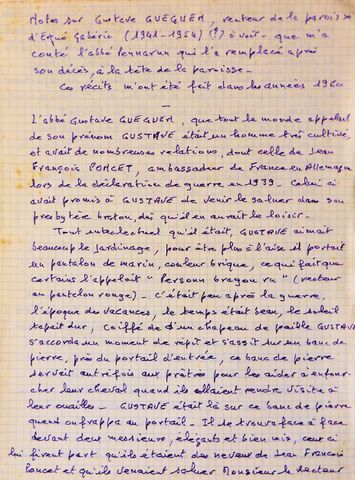 Notes sur Gustave GUEGUEN, recteur de la paroisse
d'Ergué Gabéric (1941-1954) (?) à voir - que m'a
conté l'abbé Pennarun qui l'a remplacé après
son décès, à la tête de la paroisse -
Ces récits m'ont été fait dans les années 1960
L'abbé Gustave GUEGUEN, que tout le monde appelait
de son prénom GUSTAVE était un homme très cultivé,
et avait de nombreuses relations, dont celle de Jean
François PONCET, ambassadeur de France en Allemagne
lors de la déclaration de guerre en 1939. Celui ci
avait promis à GUSTAVE de venir le saluer dans son
presbytère breton, dès qu'il en aurait le loisir -
Tout intellectuel qu'il était, GUSTAVE aimait
beaucoup le jardinage, pour être plus à l'aise il portait
un pantalon de marin, couleur brique, ce qui fait que
certains l'appelait " Persoun bragou ru " (recteur
au pantalon rouge) - C'était peu après la guerre,
l'époque des vacances, le temps était beau, le soleil
tapait dur, Coiffé d'un chapeau de paille GUSTAVE
s'accorda un moment de répit et s'assit sur un banc de
pierre, près du portail d'entrée, ce banc de pierre
servait autrefois aux prêtres pour les aider à enfour-
cher leur cheval quand ils allaient rendre visite à
leur ouailles - GUSTAVE était là sur ce banc de pierre
quand on frappa au portail - Il se trouva face à face
devant deux messieurs, élégants et bien mis, ceux ci
lui firent part qu'ils étaient des neveux de Jean François
Poncet et qu'ils venaient saluer Monsieur le recteur